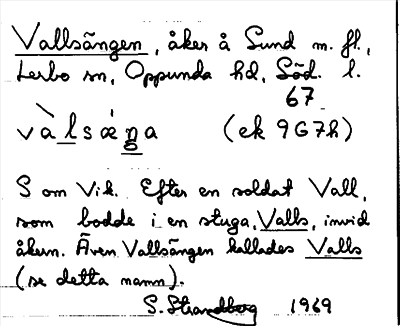 Vallsängen, åker å Sund m. fl.,
Lerbo sn, Oppunda hd, Söd. l.
67
vàlsǽŋa (ek 9G7h)
S om Vik. Efter en soldat Vall,
som bodde i en stuga, Valls, invid
åkern. Även Vallsängen kallades Valls
(se detta namn).
S. Strandberg 1969